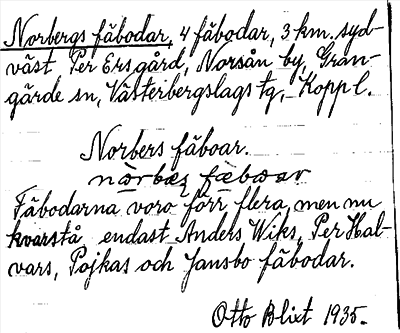 Norbergs fäbodar, 4 fäbodar, 3 km. syd-
väst Per Ersgård, Norsån by, Gran-
gärde sn, Västerbergslags tg, Kopp l.
Norbers fäboar.
Fäbodarna voro förr flera, men nu
kvarstå endast Anders Wiks, Per Hal-
vars, Pojkas och Jansbo fäbodar.
Otto Blixt 1935.